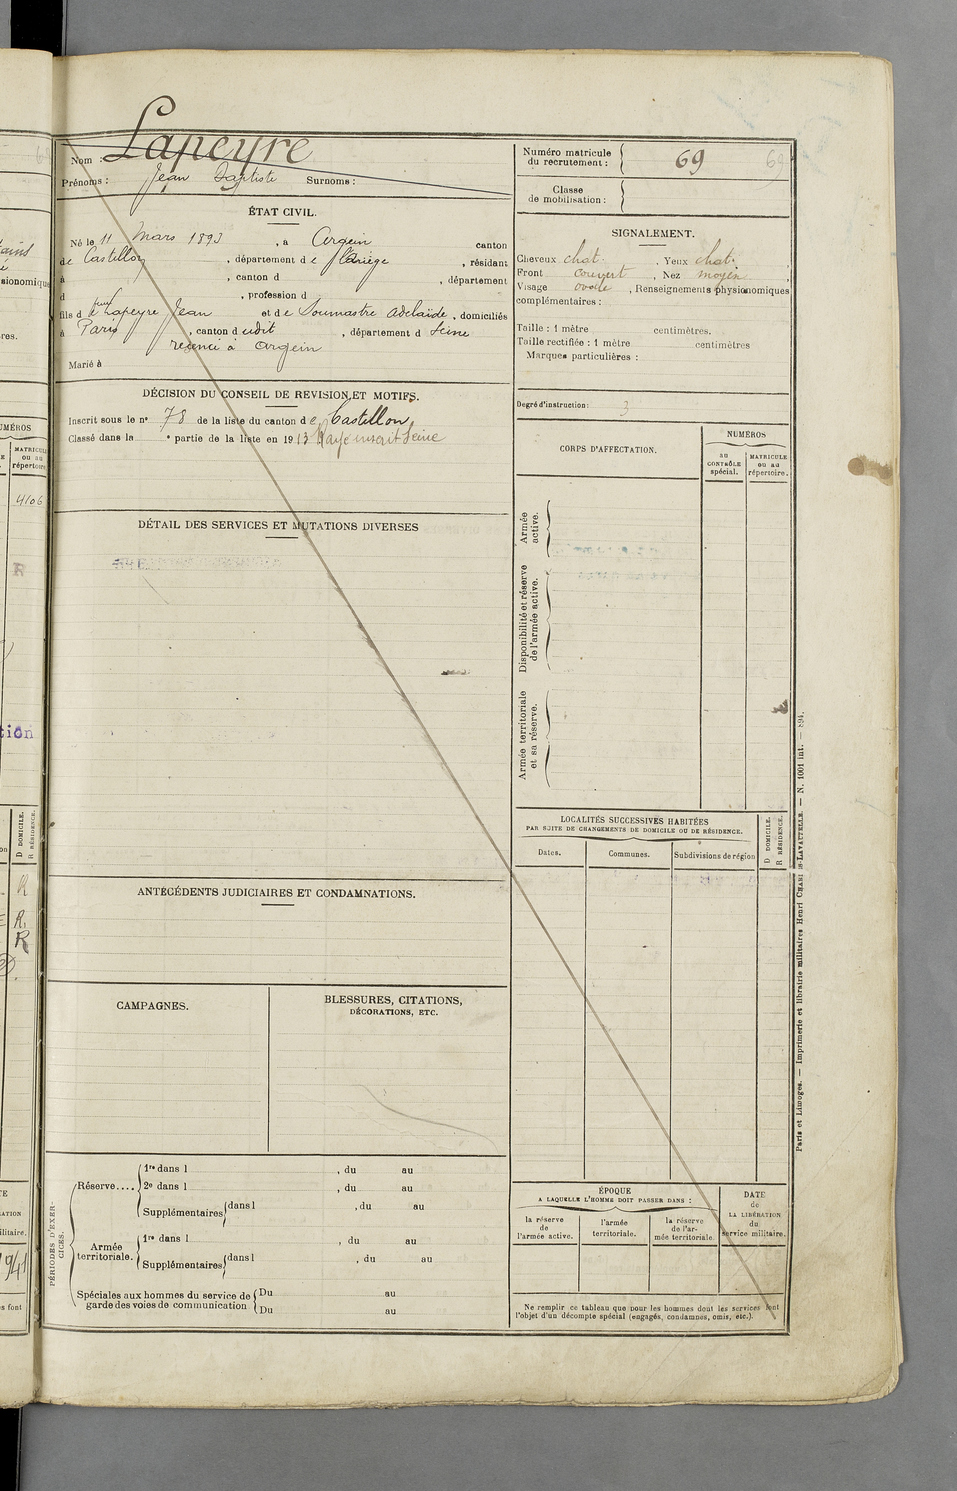 Nom : Lapeyre
Prénoms : Jean Baptiste Surnoms :
ÉTAT CIVIL.
Né le 11 Mars 1893, à Argein canton
de Castillon, département de l'Ariège, résidant
à , canton d , département
d , profession d
fils de feu Lapeyre Jean et de Soumastre Adelaïde, domiciliés
à Paris, canton dudit, département d Seine
recencé à Argein
Marié à
DÉCISION DU CONSEIL DE REVISION ET MOTIFS.
Inscrit sous le n° 78 de la liste du canton de Castillon
Classé dans la e partie de la liste en 1913 Rayé inscrit Seine
DÉTAIL DES SERVICES ET MUTATIONS DIVERSES
ANTÉCÉDENTS JUDICIAIRES ET CONDAMNATIONS.
CAMPAGNES.
BLESSURES, CITATIONS,
DÉCORATIONS, ETC.
PÉRIODES D'EXERCICES.
Réserve....
1re dans l , du au
2e dans l , du au
Supplémentaires dans l , du au
Armée
territoriale.
1re dans l , du au
Supplémentaires dans l , du au
Spéciales aux hommes du service de
garde des voies de communication
Du au
Du au
Numéro matricule
du recrutement : 69
69
Classe
de mobilisation :
SIGNALEMENT.
Cheveux chat. , Yeux chat. ,
Front couvert , Nez moyen ,
Visage ovale , Renseignements physionomiques
complémentaires :
Taille : 1 mètre centimètres.
Taille rectifiée : 1 mètre centimètres
Marques particulières :
Degré d'instruction : 3
CORPS D'AFFECTATION.
NUMÉROS
au
CONTRÔLE
spécial.
MATRICULE
ou au
répertoire.
Armée
active.
Disponibilité et réserve
de l'armée active.
Armée territoriale
et sa réserve.
LOCALITÉS SUCCESSIVES HABITÉES
PAR SUITE DE CHANGEMENTS DE DOMICILE OU DE RÉSIDENCE.
Dates.
Communes.
Subdivisions de région
D DOMICILE.
R RÉSIDENCE.
ÉPOQUE
A LAQUELLE L'HOMME DOIT PASSER DANS :
la réserve
de
l'armée active.
l'armée
territoriale.
la réserve
de l'ar-
mée territoriale.
DATE
de
LA LIBÉRATION
du
service militaire.
Ne remplir ce tableau que pour les hommes dont les services font
l'objet d'un décompte spécial (engagés, condamnés, omis, etc.).
Paris et Limoges. — Imprimerie et librairie militaires Henri CHARLES-LAVAUZELLE. — N. 1001 int. — 894.
sionomique
res.
MATRICULE
ou au
répertoire.
4106
R
tion
D DOMICILE.
R RÉSIDENCE.
R
R
R
941